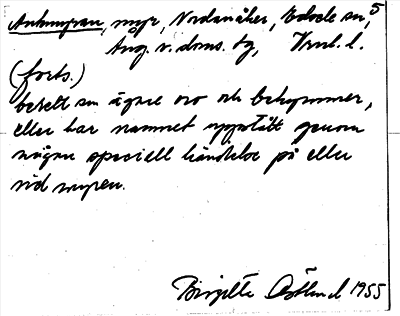 myr, Nordanåker, Edsele sn, 5
Ång. v. doms. tg, Vrnl. l.
(forts.)
berett sin ägare oro och bekymmer,
eller har namnet uppstått genom
någon speciell händelse på eller
vid myren.
Birgitta Östlund 1955